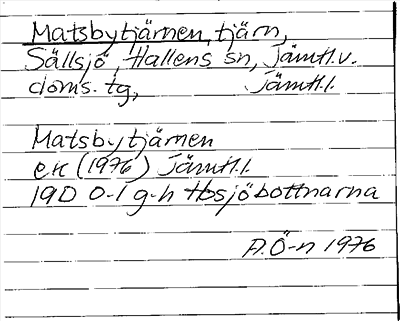 Matsbytjärnen, tjärn,
Sällsjö, Hallens sn, Jämtl.v.
doms. tg, Jämtl.l.
Matsbytjärnen
ek (1976) Jämtl.l.
19D 0-1 g-h Hosjöbottnarna
A.Ö-n 1976